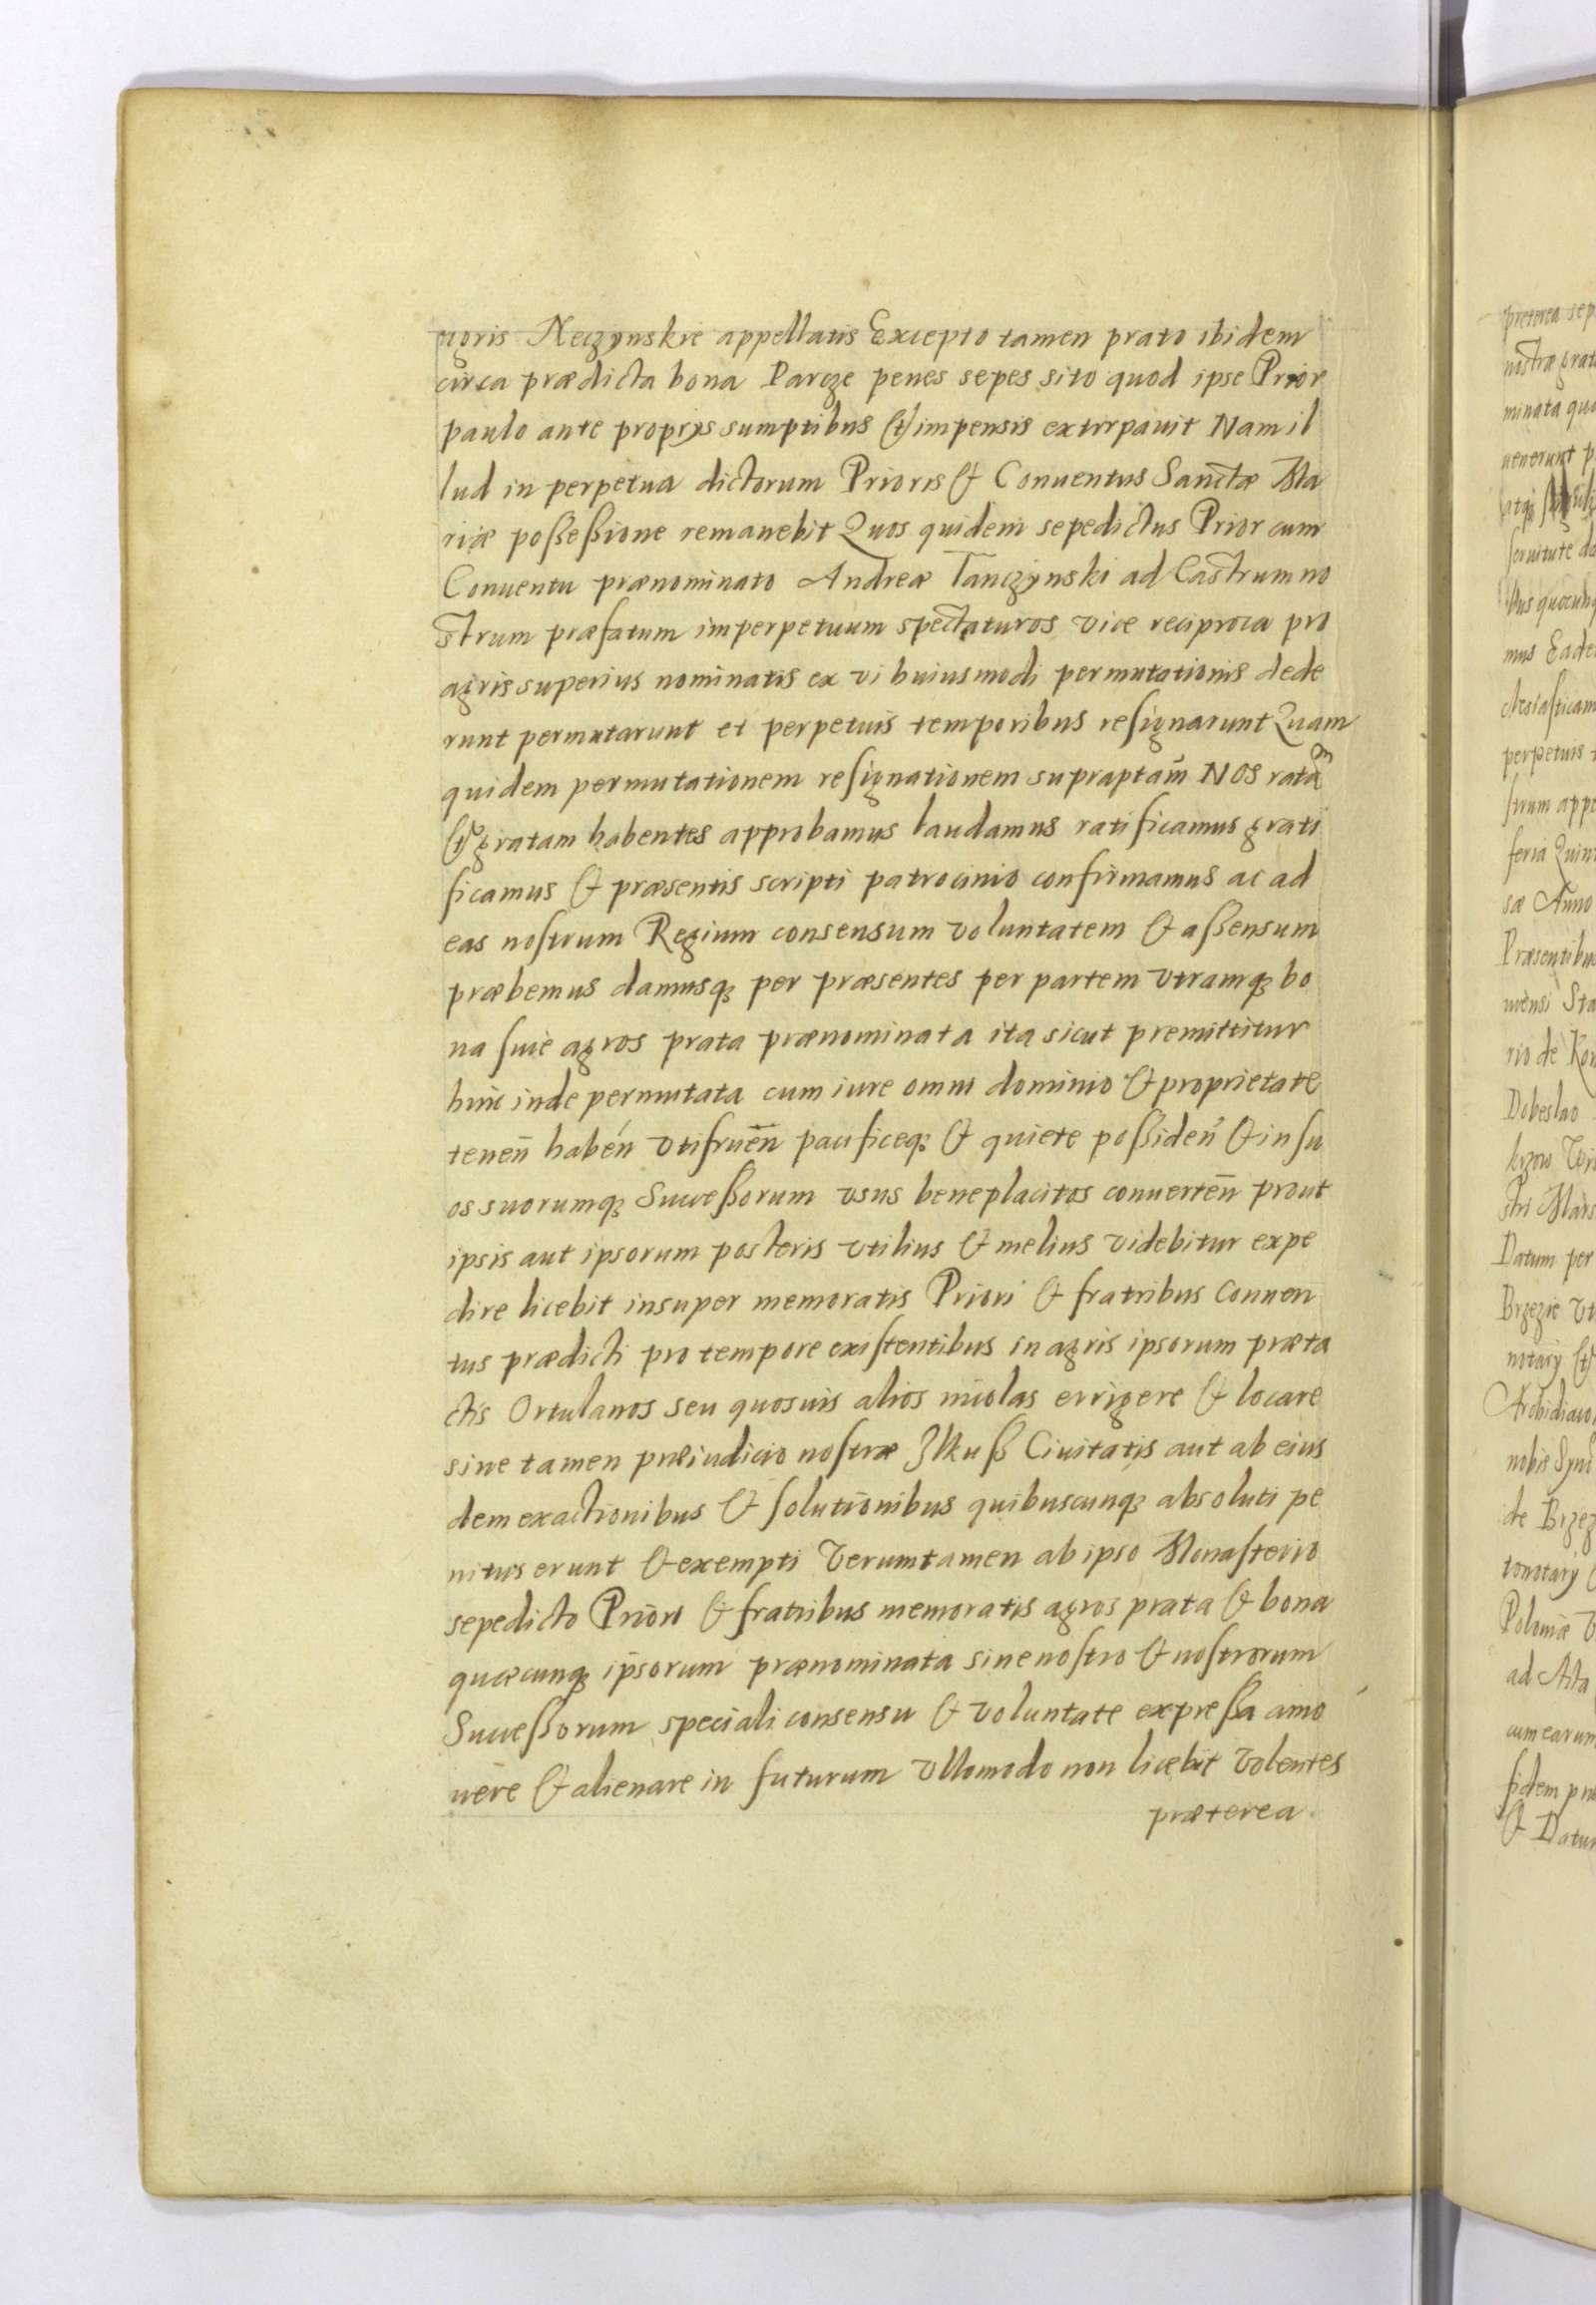 agris Neczynskie appellatis Excepto tamen prato ibidem
circa prædicta bona Parcze penes sepes sito quod ipse Prior
paulo ante proprijs sumptibus et impensis extirpauit Nam il
lud in perpetua dictorum Prioris & Conuentus Sanctæ Ma
riæ possessione remanebit Quos quidem sepedictus Prior cum
Conuentu prænominato Andreæ Tanczynski ad Castrum no
strum præfatum imperpetuum spectaturos vice reciproca pro
agris superius nominatis ex vi huiusmodi permutationis dede
runt permutarunt et perpetuis temporibus resignarunt Quam
quidem permutationem resignationem supraptam̄ Nos ratam
et gratam habentes approbamus laudamus ratificamus grati
ficamus & præsentis scripti patrocinio confirmamus ac ad
eas nostrum Regium consensum voluntatem & assensum
præbemus damusq; per præsentes per partem vtramq; bo
na siue agros prata prænominata ita sicut premittitur
hinc inde permutata cum iure omni dominio & proprietate
tenen̄ habeń vtifruen̄ pacificeq; & quiete possiden̄ & in su
os suorumq; Successorum vsus beneplacitos conuerten̄ prout
ipsis aut ipsorum posteris vtilius & melius videbitur expe
dire licebit insuper memoratis Priori & fratribus Conuen
tus prædicti pro tempore existentibus in agris ipsorum præta
ctis Ortulanos seu quosuis alios incolas errigere & locare
sine tamen præiudicio nostræ Ilkuss Ciuitatis aut ab eius
dem exactionibus & solutionibus quibuscunq; absoluti pe
nitus erunt & exempti Verumtamen ab ipso Monasterio
sepedicto Priori & fratribus memoratis agros prata & bona
quæcunq; ipsorum prænominata sine nostro & nostrorum
Successorum speciali consensu & voluntate expressa amo
uere & alienare in futurum vllomodo non licebit Volentes
præterea
preterea sep
nostræ grat
minata qua
uenerunt p
atq;
seruitute da
bus quocunq
mus Eade
clesiasticam
perpetuis
strum appe
feria Quin
sæ Anno
Præsentibu
uiensi Sta
rio de Kon
Dobeslao
kzow
stri Mars
Datum per
Brzezie vt
notarij et
Archidiaco
nobis Synd
de Brzez
tonotarij
Poloniæ V
ad Acta
cum earum
fidem præ
& Datum